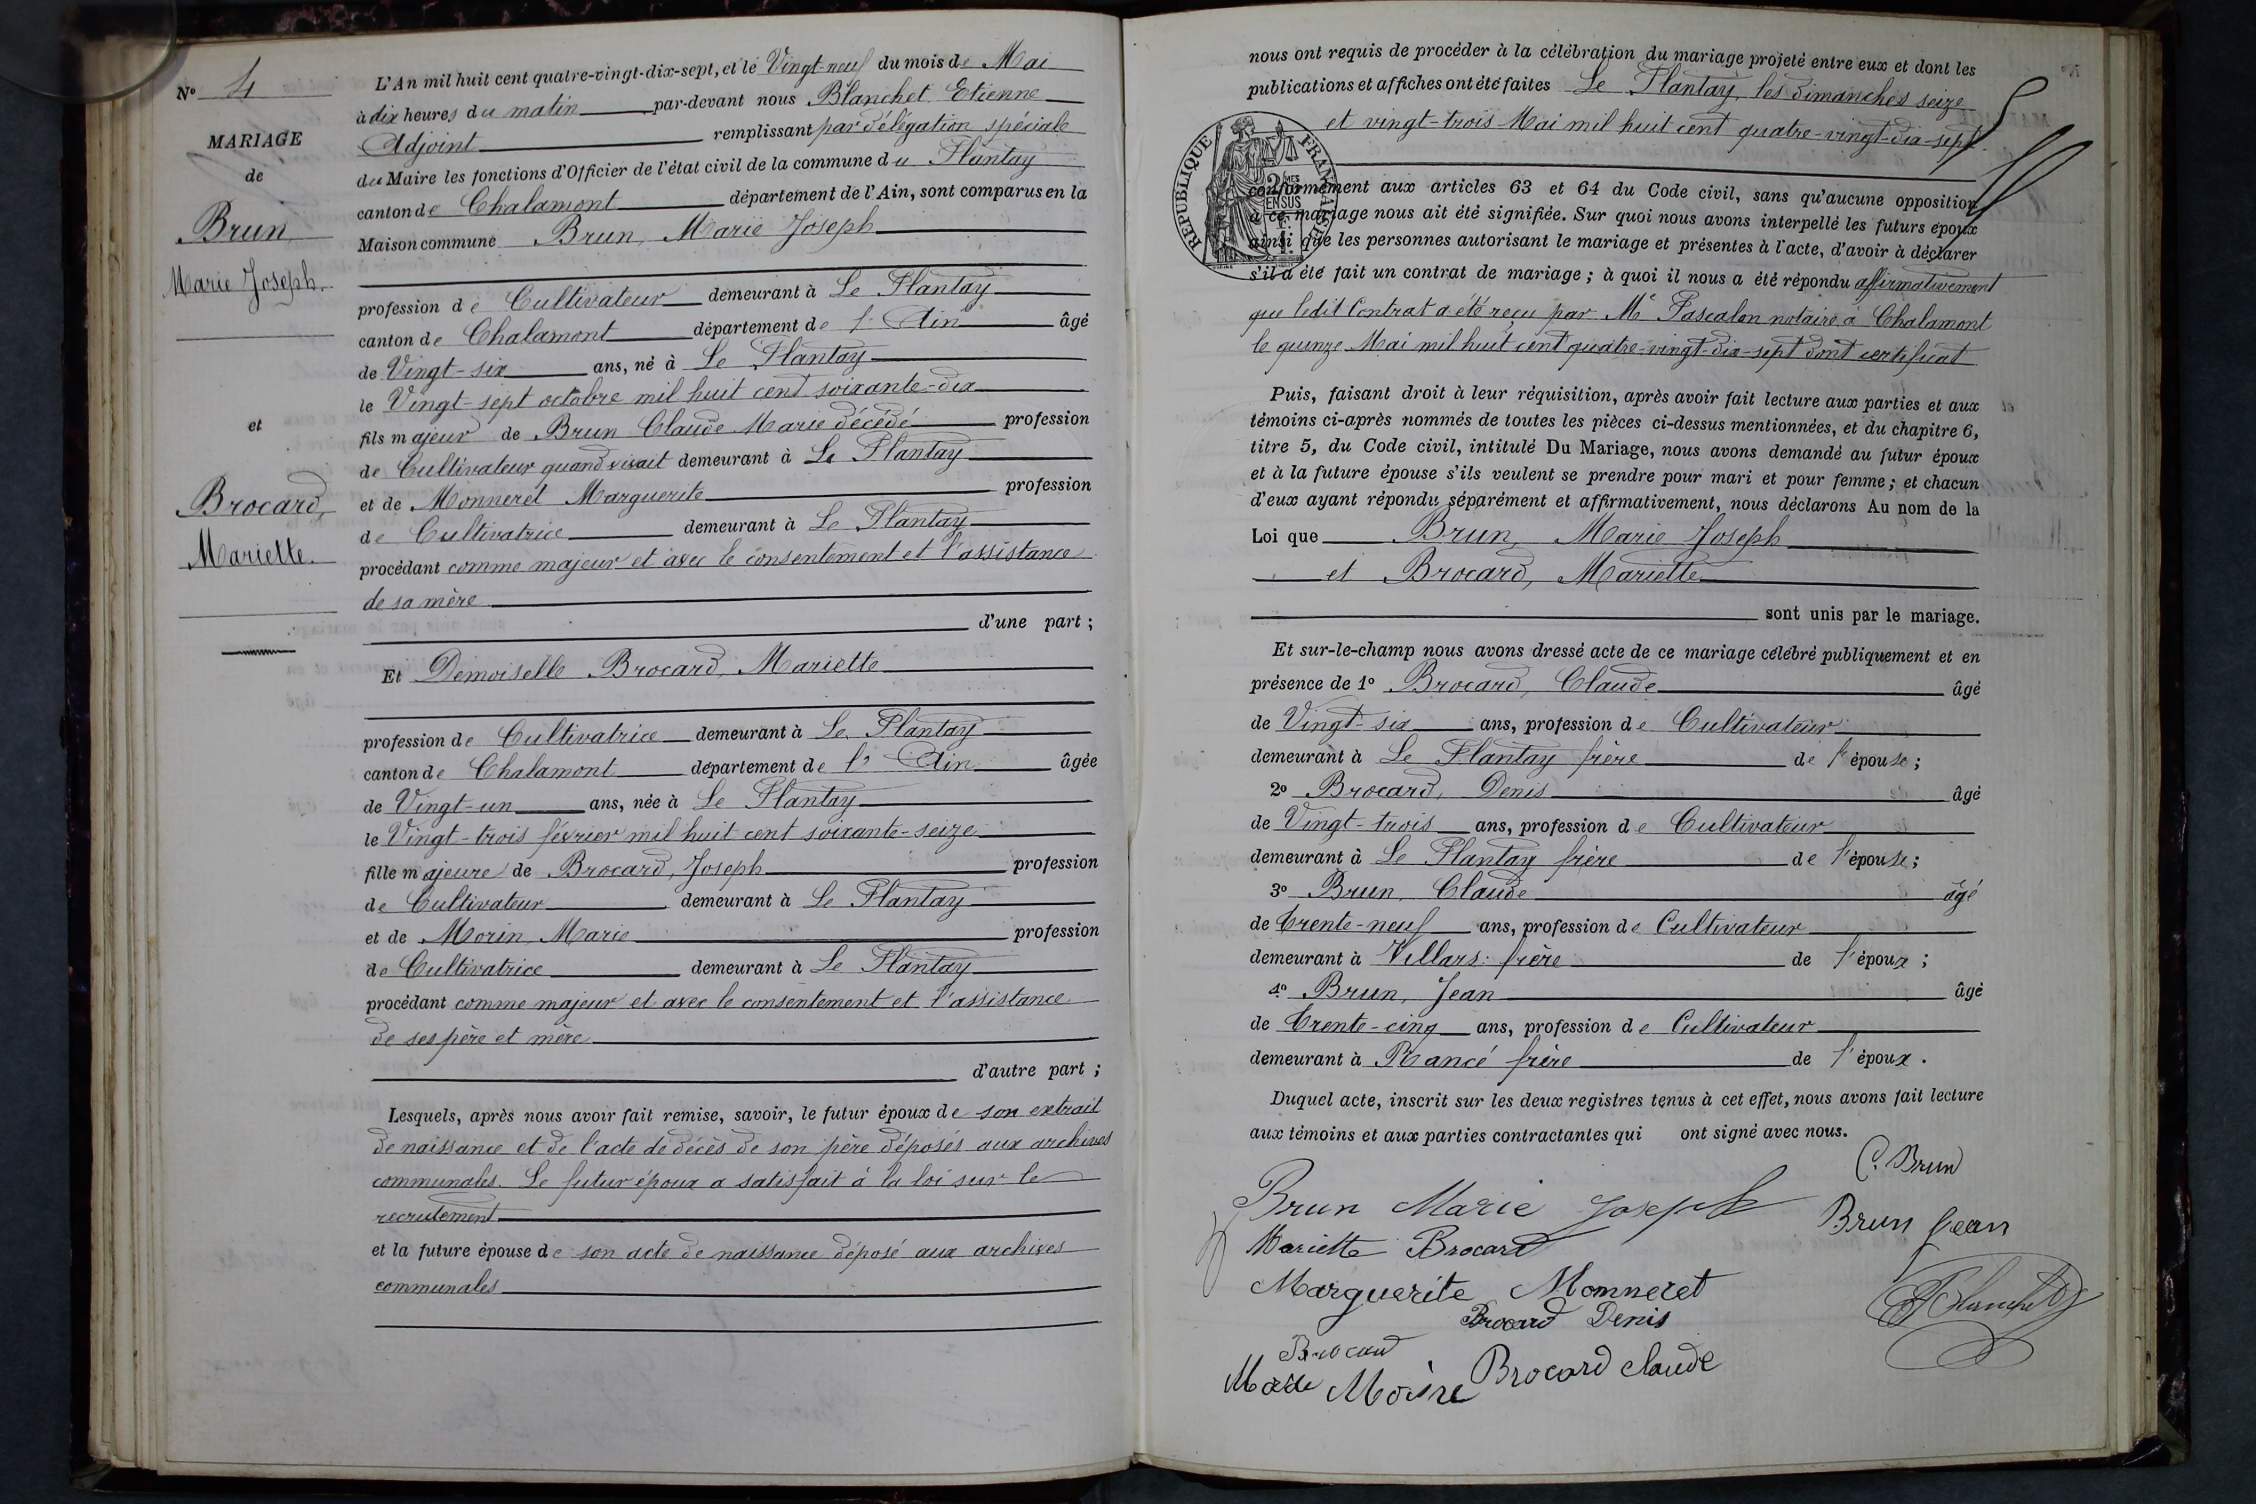 N° 4
MARIAGE
de
Brun
Marie Joseph.
et
Brocard,
Mariette.
L'An mil huit cent quatre-vingt-dix-sept, et le Vingt-neuf du mois de Mai
à dix heures du matin par-devant nous Blanchet Etienne
Adjoint remplissant par délégation spéciale
du Maire les fonctions d'Officier de l'état civil de la commune du Plantay
canton de Chalamont département de l'Ain, sont comparus en la
Maison commune Brun, Marie Joseph
profession de Cultivateur demeurant à Le Plantay
canton de Chalamont département de l'Ain âgé
de Vingt-six ans, né à Le Plantay
le Vingt-sept octobre mil huit cent soixante-dix
fils majeur de Brun Claude Marie décédé profession
de Cultivateur quand vivait demeurant à Le Plantay
et de Monneret Marguerite profession
de Cultivatrice demeurant à Le Plantay
procédant comme majeur et avec le consentement et l'assistance
de sa mère
d'une part ;
Et Demoiselle Brocard, Mariette
profession de Cultivatrice demeurant à Le Plantay
canton de Chalamont département de l'Ain âgée
de Vingt-un ans, née à Le Plantay
le Vingt-trois février mil huit cent soixante-seize
fille majeure de Brocard, Joseph profession
de Cultivateur demeurant à Le Plantay
et de Morin, Marie profession
de Cultivatrice demeurant à Le Plantay
procédant comme majeur et avec le consentement et l'assistance
de ses père et mère
d'autre part ;
Lesquels, après nous avoir fait remise, savoir, le futur époux de son extrait
de naissance et de l'acte de décès de son père déposés aux archives
communales. Le futur époux a satisfait à la loi sur le
recrutement
et la future épouse de son acte de naissance déposé aux archives
communales
nous ont requis de procéder à la célébration du mariage projeté entre eux et dont les
publications et affiches ont été faites Le Plantay, les dimanches seize
et vingt-trois Mai mil huit cent quatre-vingt-dix-sept.
RÉPUBLIQUE FRANÇAISE
2 MES
EN SUS
conformément aux articles 63 et 64 du Code civil, sans qu'aucune opposition
à ce mariage nous ait été signifiée. Sur quoi nous avons interpellé les futurs époux
ainsi que les personnes autorisant le mariage et présentes à l'acte, d'avoir à déclarer
s'il a été fait un contrat de mariage ; à quoi il nous a été répondu affirmativement
que ledit Contrat a été reçu par Me Pascalon notaire à Chalamont
le quinze Mai mil huit cent quatre-vingt-dix-sept dont certificat
Puis, faisant droit à leur réquisition, après avoir fait lecture aux parties et aux
témoins ci-après nommés de toutes les pièces ci-dessus mentionnées, et du chapitre 6,
titre 5, du Code civil, intitulé Du Mariage, nous avons demandé au futur époux
et à la future épouse s'ils veulent se prendre pour mari et pour femme ; et chacun
d'eux ayant répondu séparément et affirmativement, nous déclarons Au nom de la
Loi que Brun, Marie Joseph
et Brocard, Mariette
sont unis par le mariage.
Et sur-le-champ nous avons dressé acte de ce mariage célébré publiquement et en
présence de 1° Brocard, Claude âgé
de Vingt-six ans, profession de Cultivateur
demeurant à Le Plantay frère de l'épouse ;
2° Brocard, Denis âgé
de Vingt-trois ans, profession de Cultivateur
demeurant à Le Plantay frère de l'épouse ;
3° Brun, Claude âgé
de trente-neuf ans, profession de Cultivateur
demeurant à Villars. frère de l'époux ;
4° Brun, Jean âgé
de trente-cinq ans, profession de Cultivateur
demeurant à Rancé frère de l'époux.
Duquel acte, inscrit sur les deux registres tenus à cet effet, nous avons fait lecture
aux témoins et aux parties contractantes qui ont signé avec nous.
C. Brun
Brun Marie Joseph
Brun Jean
Mariette Brocard
Marguerite Monneret
Blanchet
Brocard Denis
Brocard
Brocard Claude